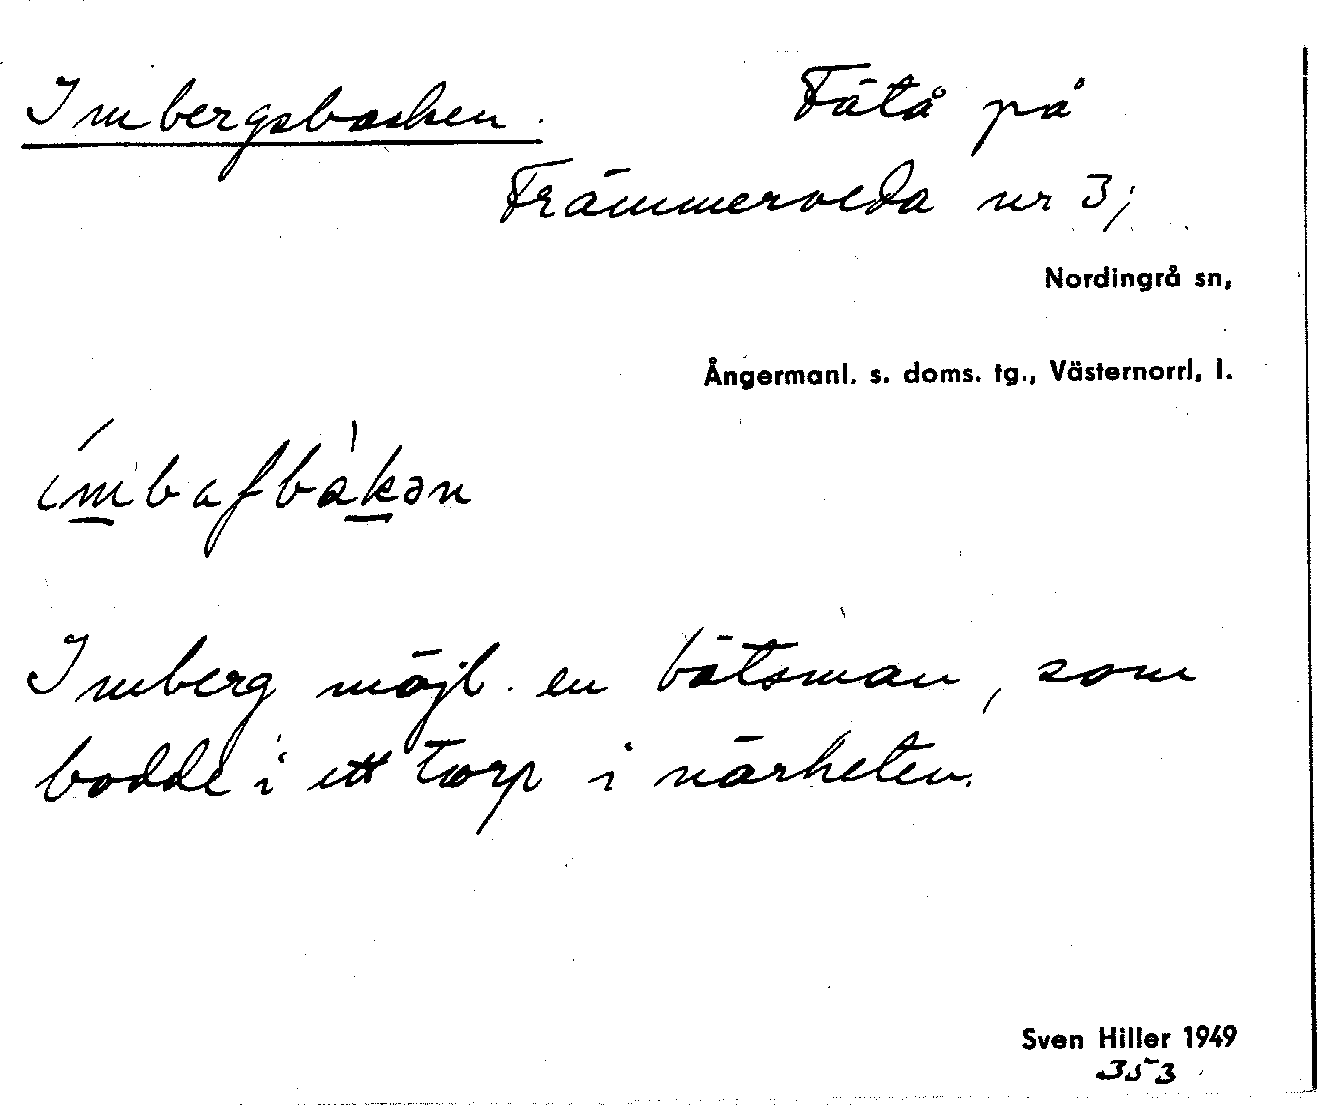 Imbergsbacken.
Fätå på
Främmerveda nr 3;
Nordingrå sn,
Ångermanl. s. doms. tg., Västernorrl. l.
ímbaʃbàkən
Imberg möjl. en båtsman, som
bodde i ett torp i närheten.
Sven Hiller 1949
353